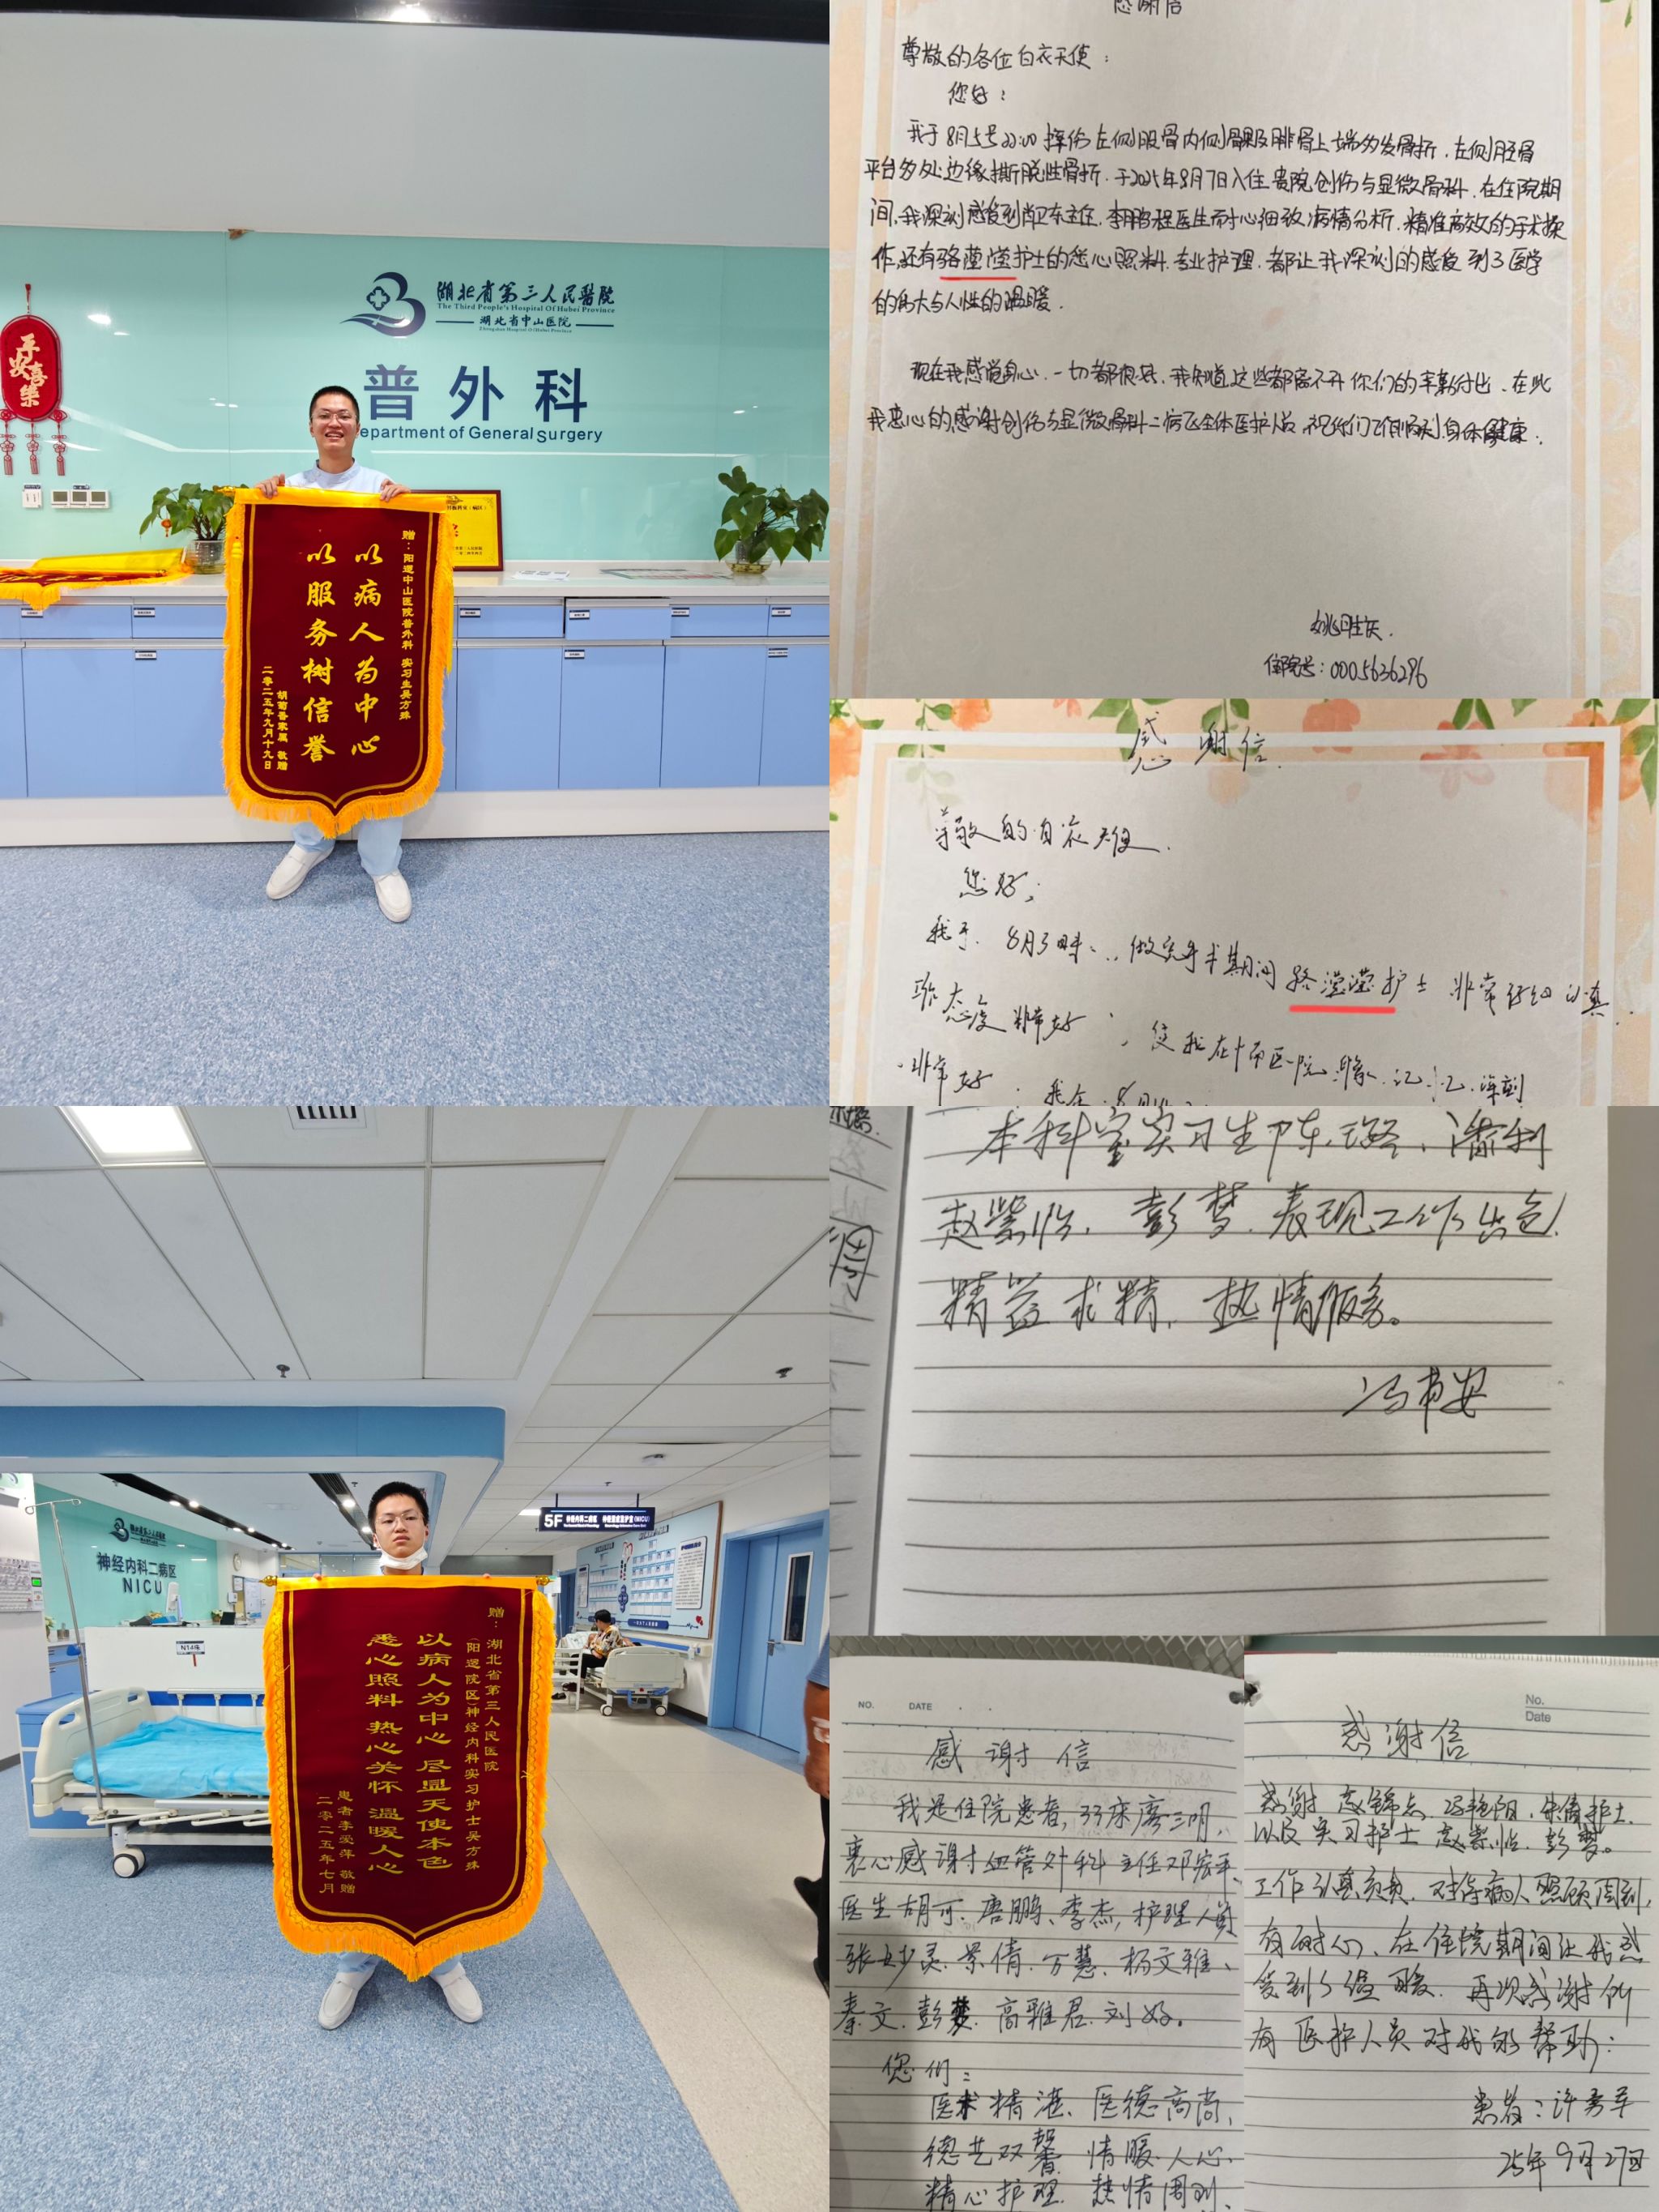 平安喜樂
湖北省第三人民醫院
The Third People's Hospital Of Hubei Province
湖北省中山医院
Zhongshan Hospital Of Hubei Province
普外科
epartment of General Surgery
赠：阳逻中山医院普外科 实习生吴方珠
以病人为中心
以服务树信誉
胡菊香家属 敬赠
二零二五年九月十九日
感谢信
尊敬的各位白衣天使：
您好：
我于8月5号22:00摔伤左侧股骨内侧髁及腓骨上端多发骨折，左侧胫骨
平台多处边缘撕脱性骨折，于2025年8月7日入住贵院创伤与显微骨科，在住院期
间，我深刻感受到肖卫东主任，李鹏程医生耐心细致病情分析，精准高效的手术操
作，还有骆滢滢护士的悉心照料，专业护理，都让我深刻的感受到了医学
的伟大与人性的温暖．
现在我感觉身心，一切都很好，我知道这些都离不开你们的辛勤付出，在此
我衷心的感谢创伤与显微骨科二病区全体医护人员，祝你们工作顺利，身体健康．
住院号：0005636296
感谢信
尊敬的白衣天使
您好；
我于 8月3日 做完手术期间 骆滢滢护士 非常仔细认真
态度非常好 使我在 医院 深刻
非常好
本科室实习生陈璐、潘利
赵紫怡、彭梦，表现工作出色，
精益求精，热情服务。
神经内科二病区
NICU
N14床
5F 神经内科二病区 神经重症监护室(NICU)
赠：湖北省第三人民医院
(阳逻院区)神经内科实习护士吴方珠
以病人为中心 尽显天使本色
悉心照料 热心关怀 温暖人心
患者李爱萍 敬赠
二零二五年七月
NO. DATE
感谢信
我是住院患者，33床廖三明，
衷心感谢血管外科主任邓宏平，
医生胡可、唐鹏、李杰，护理人员
张妙灵、景倩、万慧、杨文雅、
秦文、彭梦、高雅君、刘好。
您们：
医术精湛、医德高尚，
德艺双馨 情暖人心，
精心护理 热情周到，
No.
Date
感谢信
感谢 赵锦 、冯艳阳、朱倩护士
以及实习护士 赵紫怡、彭梦。
工作认真负责，对待病人照顾周到，
有耐心，在住院期间让我感
受到了温暖．再次感谢所
有医护人员对我的帮助：
患者：许
25年9月27日